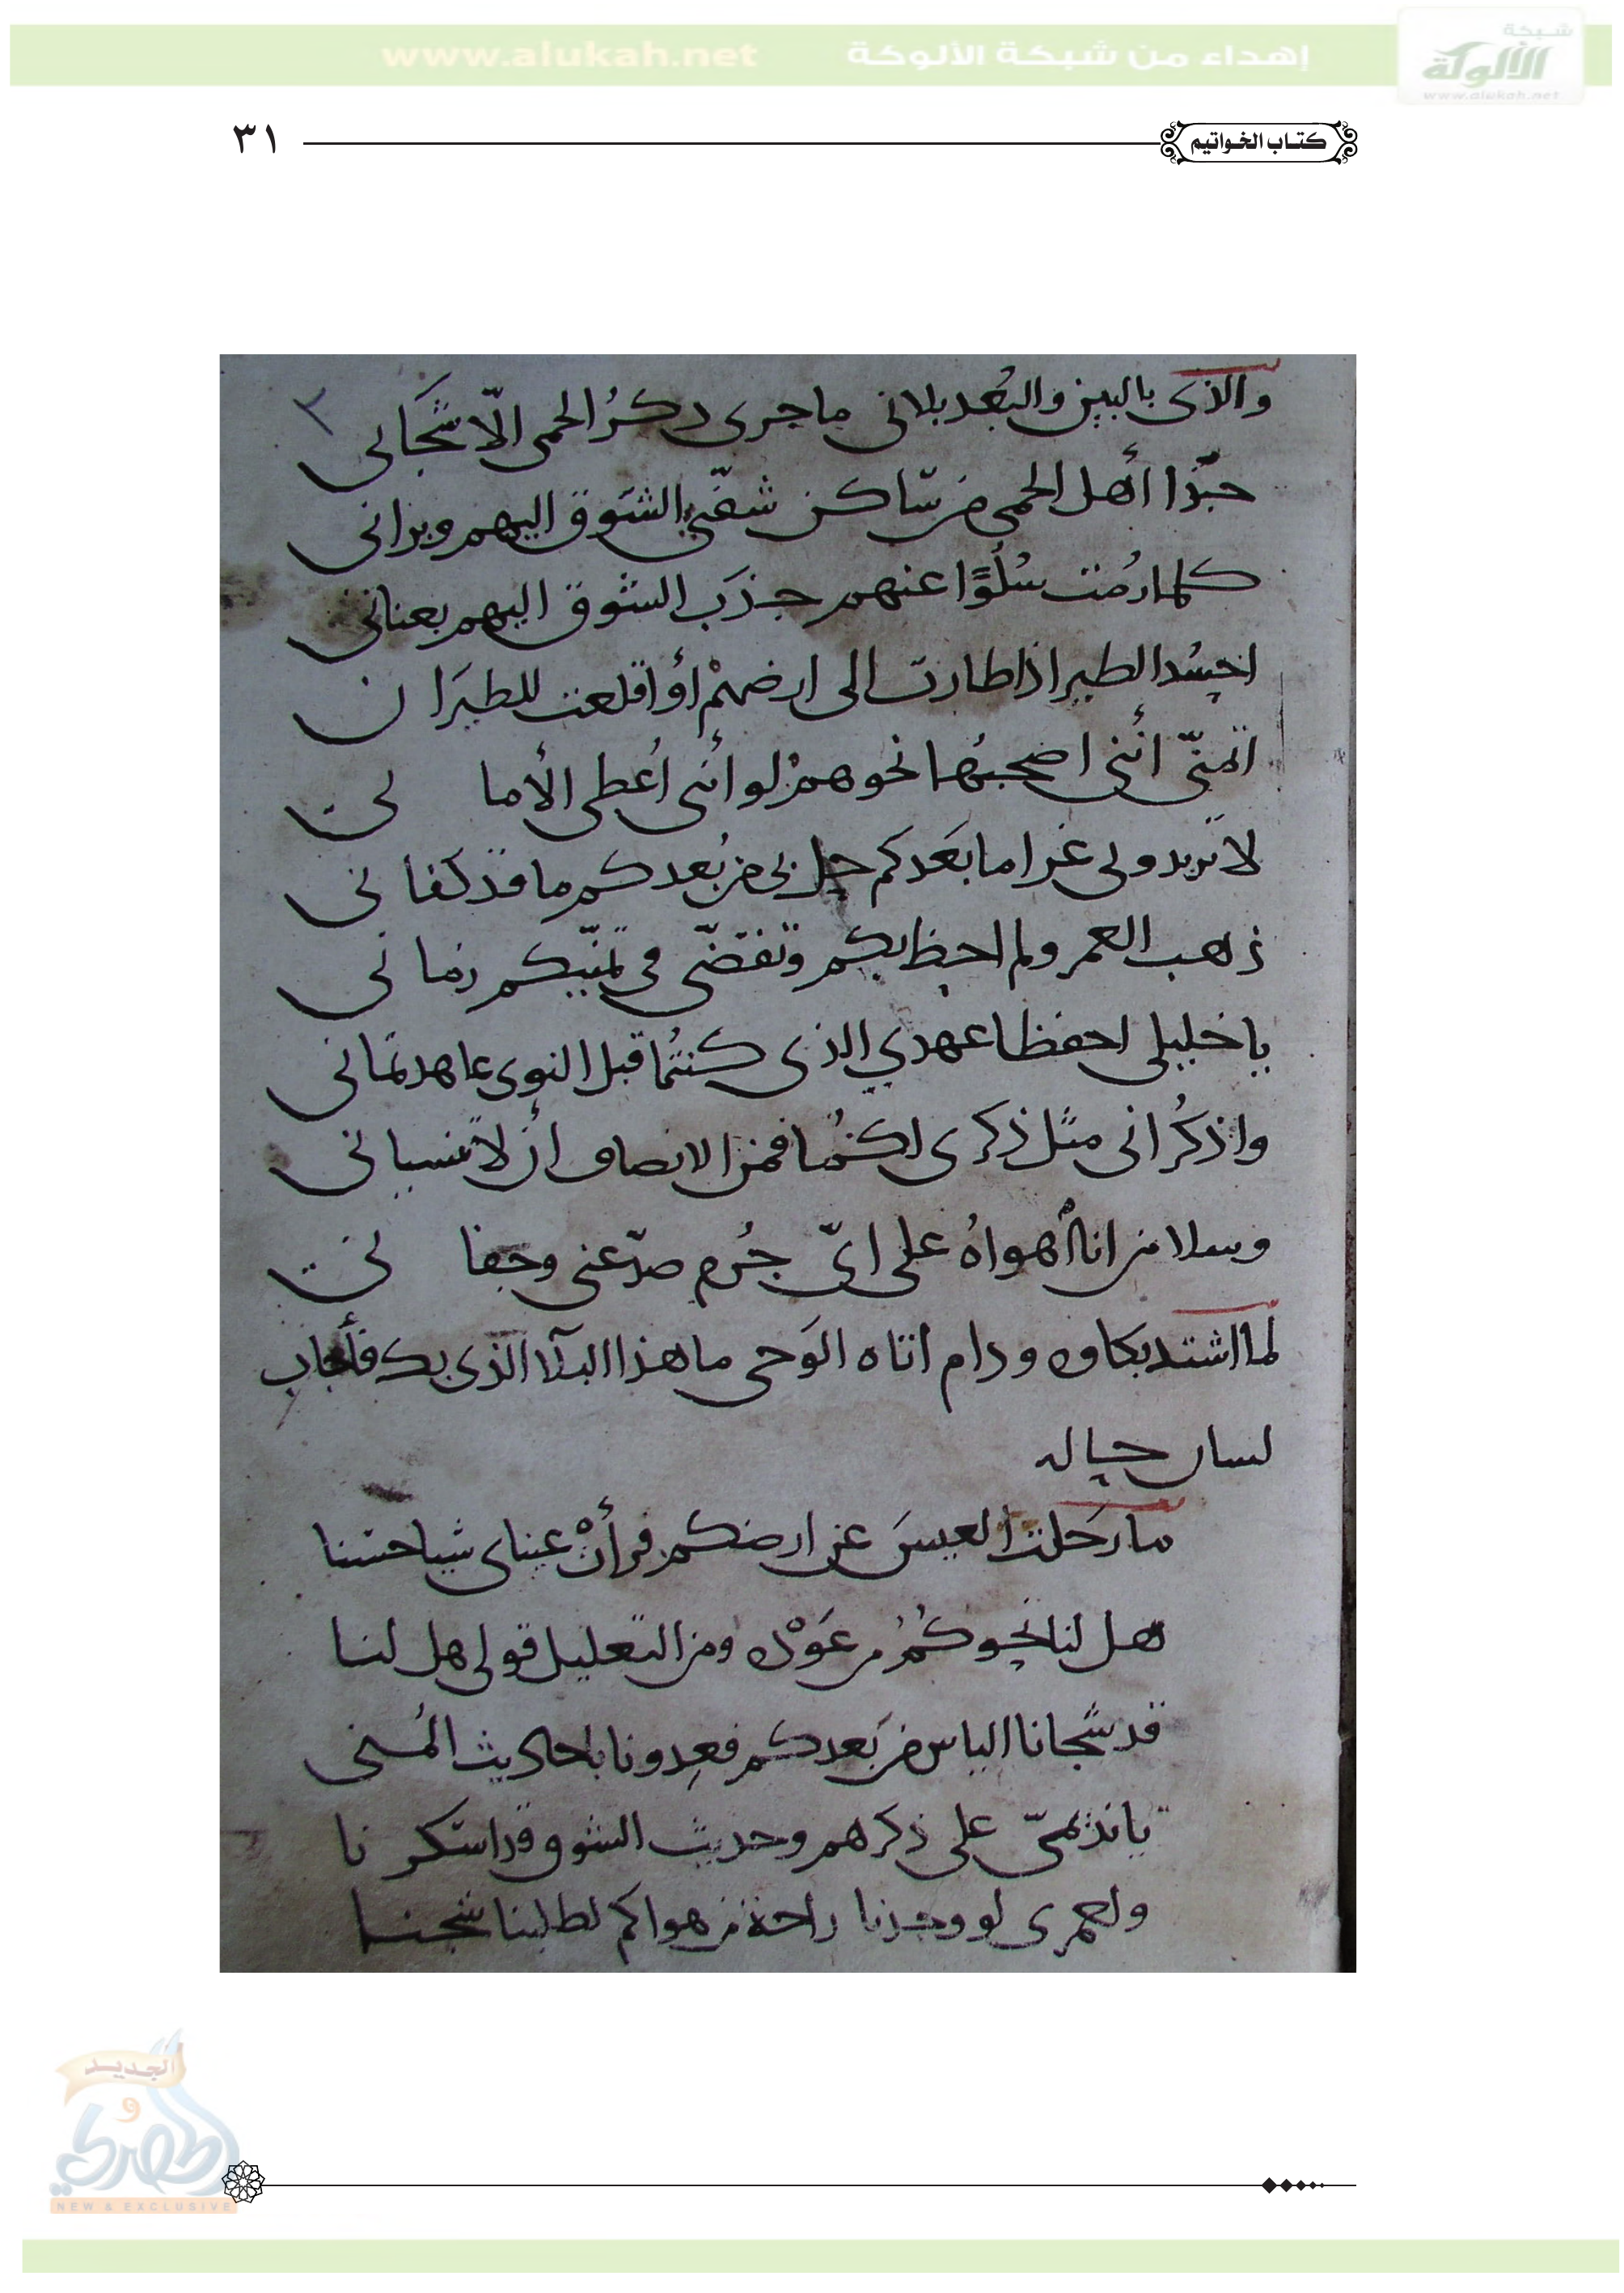 شبكة
الألوكة
www.alukah.net
إهداء من شبكة الألوكة www.alukah.net
كتاب الخواتيم ٣١
والذى بالبين والبُعد بلانى ما جرى ذكرُ الحمى الّا شَجَانى
حبّذا أهل الحمى من ساكن شفّنى الشَوق اليهم وبرانى
كلما رُمت سُلُوًّا عنهم جذَب الشوق اليهم بعنانى
احسُد الطير اذا طارت الى ارضهمْ أو اقلعت للطيرَان
اتمنّى أننى اصحبُها نحوهمْ لو أننى أُعطى الأمانى
لا تزيدونى غراما بَعَدكم حل بى من بُعدكم ما قد كفانى
ذهب العمر ولم احظ بكم وتقضّى فى تمنّيكم زمانى
يا خليلى احفظا عهدي الذى كنتُما قبل النوى عاهدتمانى
واذكُرانى مثل ذكرى لكُما فمن الانصاف أن لا تنسيانى
وسلا من انا أهواهُ على اىّ جُرم صدّ عنى وجفانى
لما اشتد بكاوه ودام اتاه الوَحى ما هذا البلآ الذى بك فأجاب
لسان حاله
ما رَحلت العيسَ عن ارضكم فرأتْ عيناى شيا حسنا
هل لنا نحوكُمُ من عَوْدة ومن التعليل قولى هل لنا
قد شجانا الياس من بَعدكم فعِدونا باحاديث المُنى
يا نديمىّ على ذكرهم وحديث الشوق قد اسكرنا
ولعمرى لو وجدنا راحة من هواكم لطلبنا شجنا
الجديد
و
الحصري
NEW & EXCLUSIVE